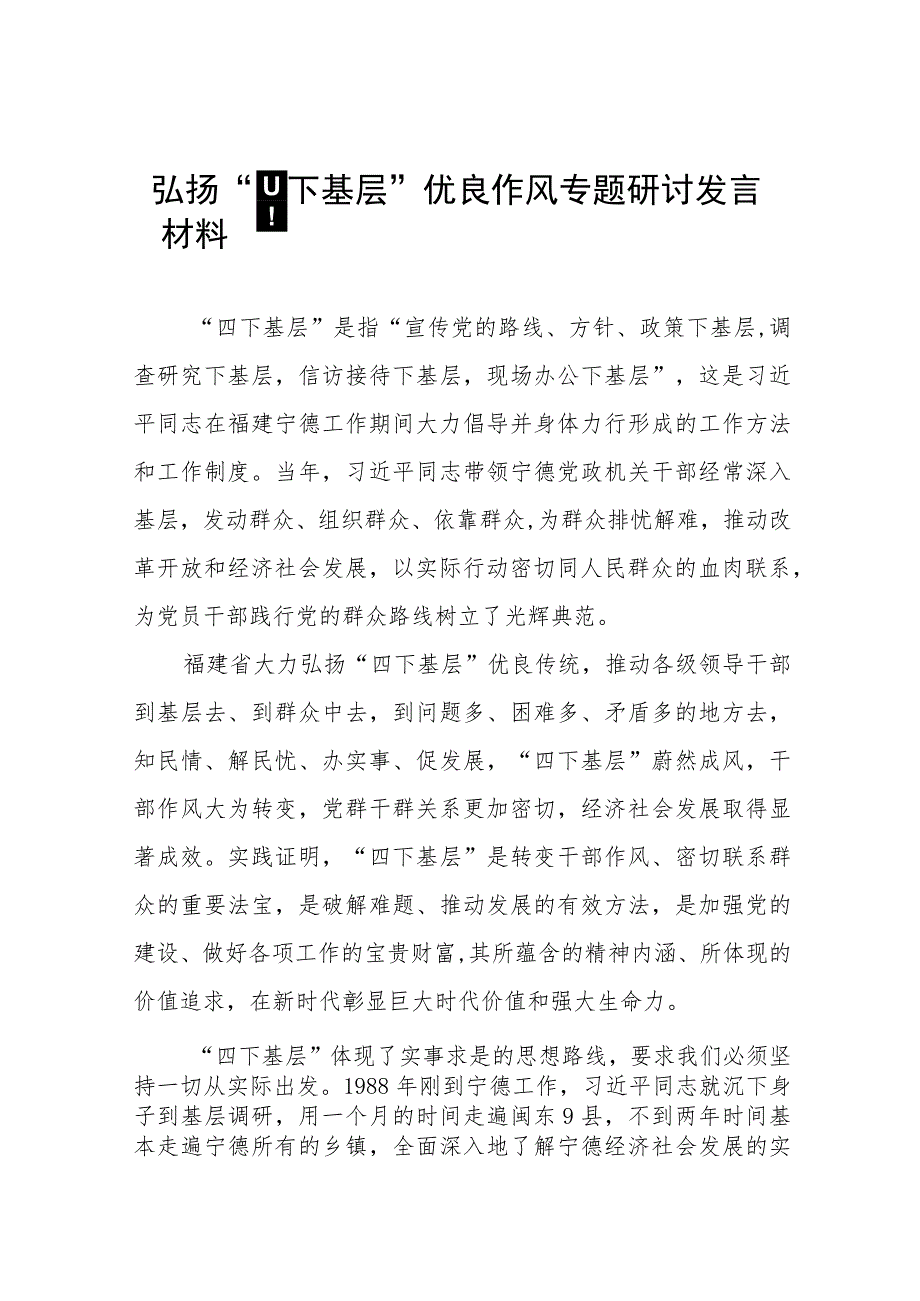 弘扬“U!下基层”优良作风专题研讨发言
材料
“四下基层”是指“宣传党的路线、方针、政策下基层,调
查研究下基层，信访接待下基层，现场办公下基层”，这是习近
平同志在福建宁德工作期间大力倡导并身体力行形成的工作方法
和工作制度。当年，习近平同志带领宁德党政机关干部经常深入
基层，发动群众、组织群众、依靠群众,为群众排忧解难，推动改
革开放和经济社会发展，以实际行动密切同人民群众的血肉联系，
为党员干部践行党的群众路线树立了光辉典范。
福建省大力弘扬“四下基层”优良传统，推动各级领导干部
到基层去、到群众中去，到问题多、困难多、矛盾多的地方去，
知民情、解民忧、办实事、促发展，“四下基层”蔚然成风，干
部作风大为转变，党群干群关系更加密切，经济社会发展取得显
著成效。实践证明，“四下基层”是转变干部作风、密切联系群
众的重要法宝，是破解难题、推动发展的有效方法，是加强党的
建设、做好各项工作的宝贵财富,其所蕴含的精神内涵、所体现的
价值追求，在新时代彰显巨大时代价值和强大生命力。
“四下基层”体现了实事求是的思想路线，要求我们必须坚
持一切从实际出发。1988年刚到宁德工作，习近平同志就沉下身
子到基层调研，用一个月的时间走遍闽东9县，不到两年时间基
本走遍宁德所有的乡镇，全面深入地了解宁德经济社会发展的实